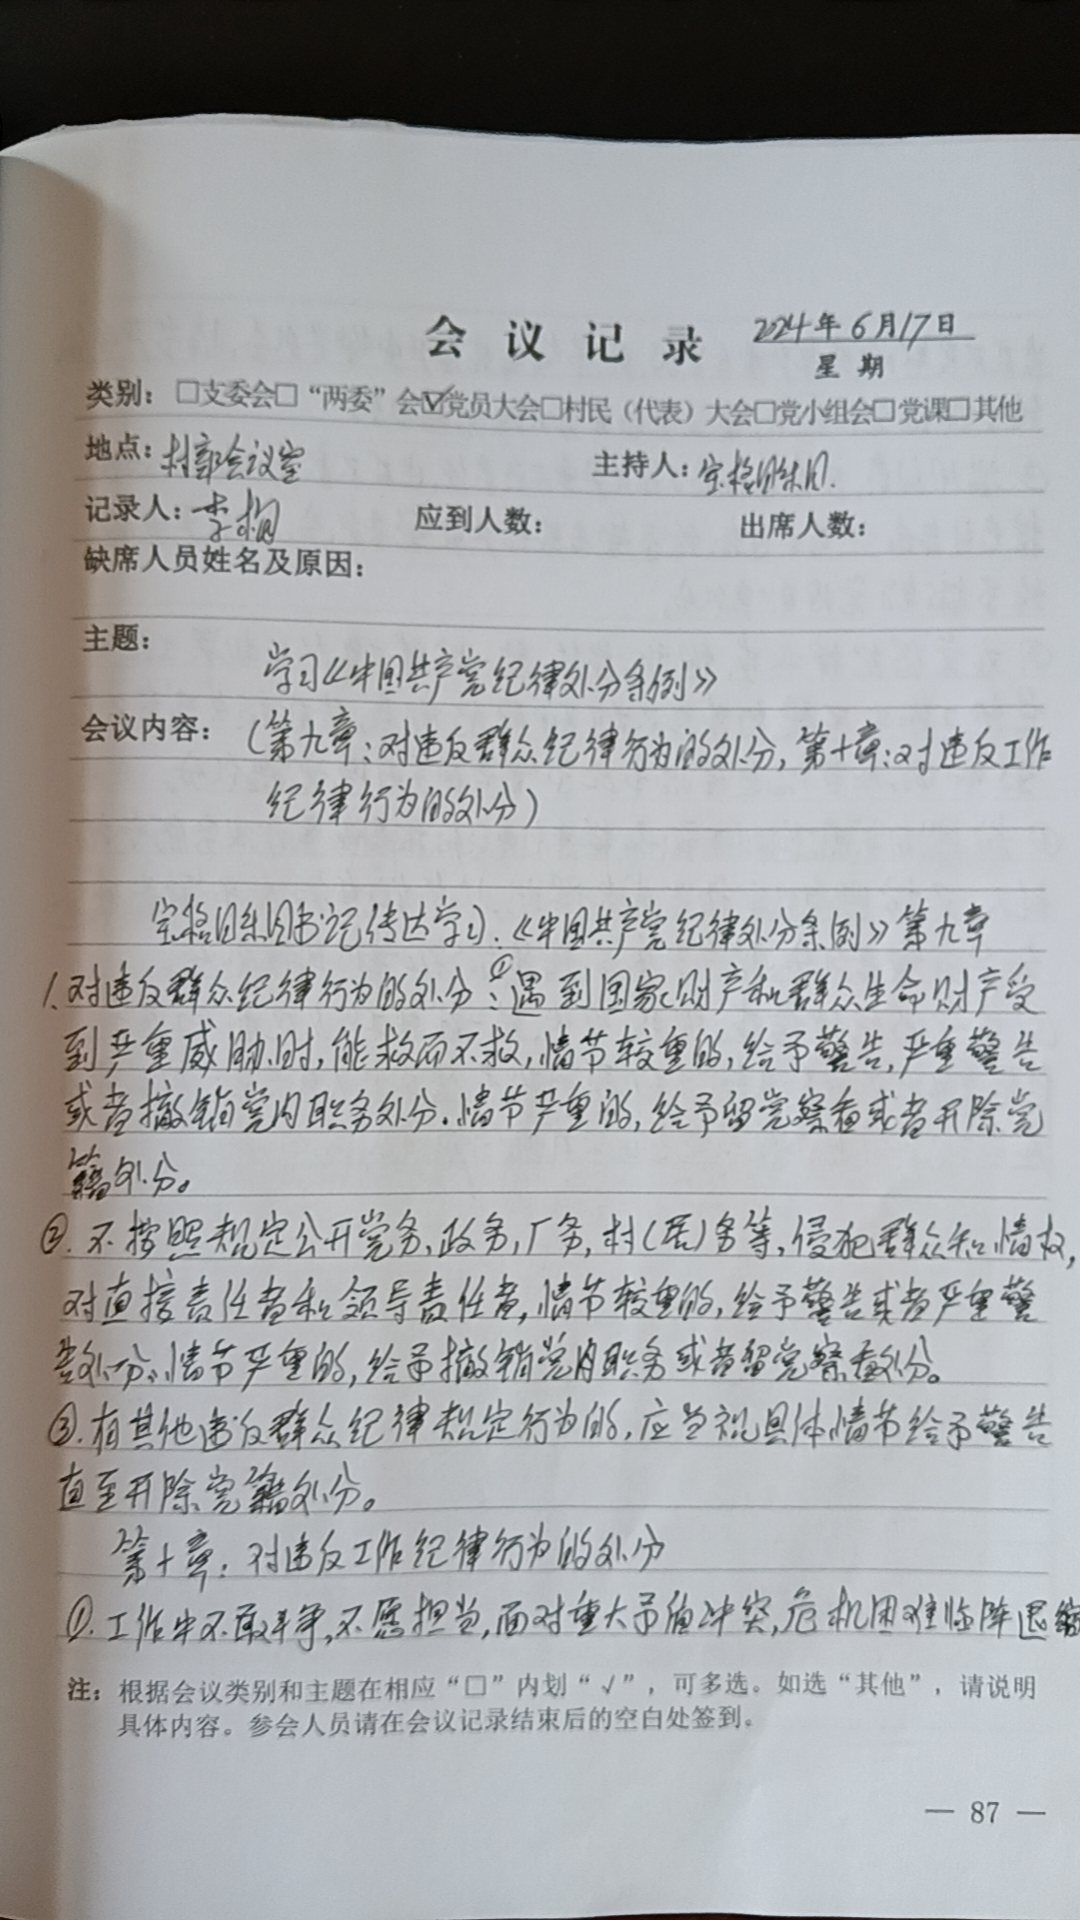 会议记录 2024年6月17日
星期
类别：□支委会□“两委”会☑党员大会□村民（代表）大会□党小组会□党课□其他
地点：村部会议室 主持人：宝格日乐图
记录人：李桐 应到人数： 出席人数：
缺席人员姓名及原因：
主题：
学习《中国共产党纪律处分条例》
会议内容：（第九章：对违反群众纪律行为的处分，第十章：对违反工作
纪律行为的处分）
宝格日乐图书记传达学习：《中国共产党纪律处分条例》第九章
1、对违反群众纪律行为的处分：①遇到国家财产和群众生命财产受
到严重威胁时，能救而不救，情节较重的，给予警告，严重警告
或者撤销党内职务处分。情节严重的，给予留党察看或者开除党
籍处分。
②、不按照规定公开党务、政务，厂务，村（居）务等，侵犯群众知情权，
对直接责任者和领导责任者，情节较重的，给予警告或者严重警
告处分。情节严重的，给予撤销党内职务或者留党察看处分。
③、有其他违反群众纪律规定行为的，应当视具体情节给予警告
直至开除党籍处分。
第十章：对违反工作纪律行为的处分
①、工作中不敢斗争，不愿担当，面对重大矛盾冲突，危机困难临阵退缩
注：根据会议类别和主题在相应“□”内划“√”，可多选。如选“其他”，请说明
具体内容。参会人员请在会议记录结束后的空白处签到。
— 87 —